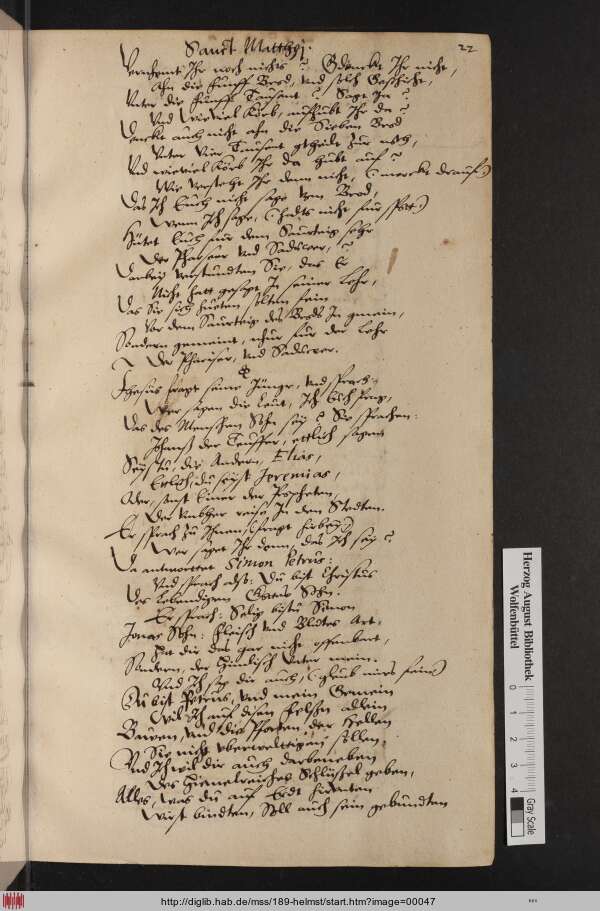 Sanct Matthej.
22
Vernhemt Ihr noch nichts? Gedenckt Ihr nicht,
Ahn die fünff Brod, und solch Geschicht,
Unter die fünff Tausent? Sagt
Und wieviel Körb, auffhubt Ihr da?
Denckt auch nicht ahn die Sieben Brod
Unter Vier Tausent getheilt zur noth,
Und wieviel Körb Ihr da hubt auff?
Wie versteht Ihr denn nicht, (merckt drauf)
Das Ich Euch nicht sage vom Brod,
Wenn Ich sage, (halts nicht für spott)
Hütet Euch für dem Saurteig sehr
Der Phariseer und Saduceer,
Da verstundten Sie, das Er
Nicht hatt gesagt In seiner Lehr,
Das Sie sich hüeten solten fein
Vor dem Saurteig des Brods In gmein,
Sondern gemeint, nhur für der Lehr
Der Phariseer, und Saduceer.
Jhesus fragt seine Jünger, und sprach:
Wer sagen die Leut, Ich Euch frag,
Das des Menschen Sohn sey? Sie sprachen:
Johanß der Teuffer, ettlich sagen
Seystu, die Andern, Elias,
Ettlich, du seyst Jeremias,
Oder, sonst Einer der Propheten,
Der umbher reise In den Stedten.
Er sprach zu Ihnen (fragt hirbey)
Wer saget Ihr denn, das Ich sey?
Da antworttet Simon Petrus:
Und sprach also: Du bist Christus
Des Lebendigen Gottes Sohn.
Er sprach: Selig bistu Simon
Jonas Sohn: Fleisch und Blutes Art,
Hat dir das gar nicht offenbart,
Sondern, der Himlisch Vater mein.
Und Ich sag dir auch, (glaub mirs fein)
Du bist Petrus, und mein Gemein
Wil Ich auf disen Felsen allein
Bawen, und die Pforten der Hellen
Sie nicht uberweltigen sollen,
Und Ich wil dir auch darbeneben
Des Himelreiches Schlüssel geben,
Alles, was du auf Erdt hirunten
Wirst bindten, Soll auch sein gebundten
Herzog August Bibliothek
Wolfenbüttel
0 1 2 3 4
Gray Scale
http://diglib.hab.de/mss/189-helmst/start.htm?image=00047